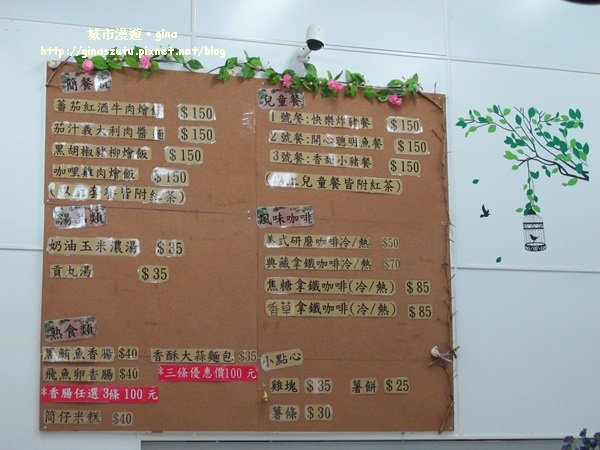 城市漫遊。gina
http://ginaszutu.pixnet.net/blog
簡餐
蕃茄紅酒牛肉燴飯 $150
茄汁義大利肉醬麵 $150
黑胡椒豬柳燴飯 $150
咖哩雞肉燴飯 $150
(以上套餐皆附紅茶)
湯品類
奶油玉米濃湯 $35
貢丸湯 $35
熟食類
黑鮪魚香腸 $40
飛魚卵香腸 $40
*香腸任選3條100元
筒仔米糕 $40
香酥大蒜麵包 $35
*三條優惠價100元
兒童餐
1號餐:快樂炸豬餐 $150
2號餐:開心聰明魚餐 $150
3號餐:香甜小豬餐 $150
(以上兒童餐皆附紅茶)
風味咖啡
美式研磨咖啡冷/熱 $50
典藏拿鐵咖啡冷/熱 $70
焦糖拿鐵咖啡(冷/熱) $85
香草拿鐵咖啡(冷/熱) $85
小點心
雞塊 $35 薯餅 $25
薯條 $30